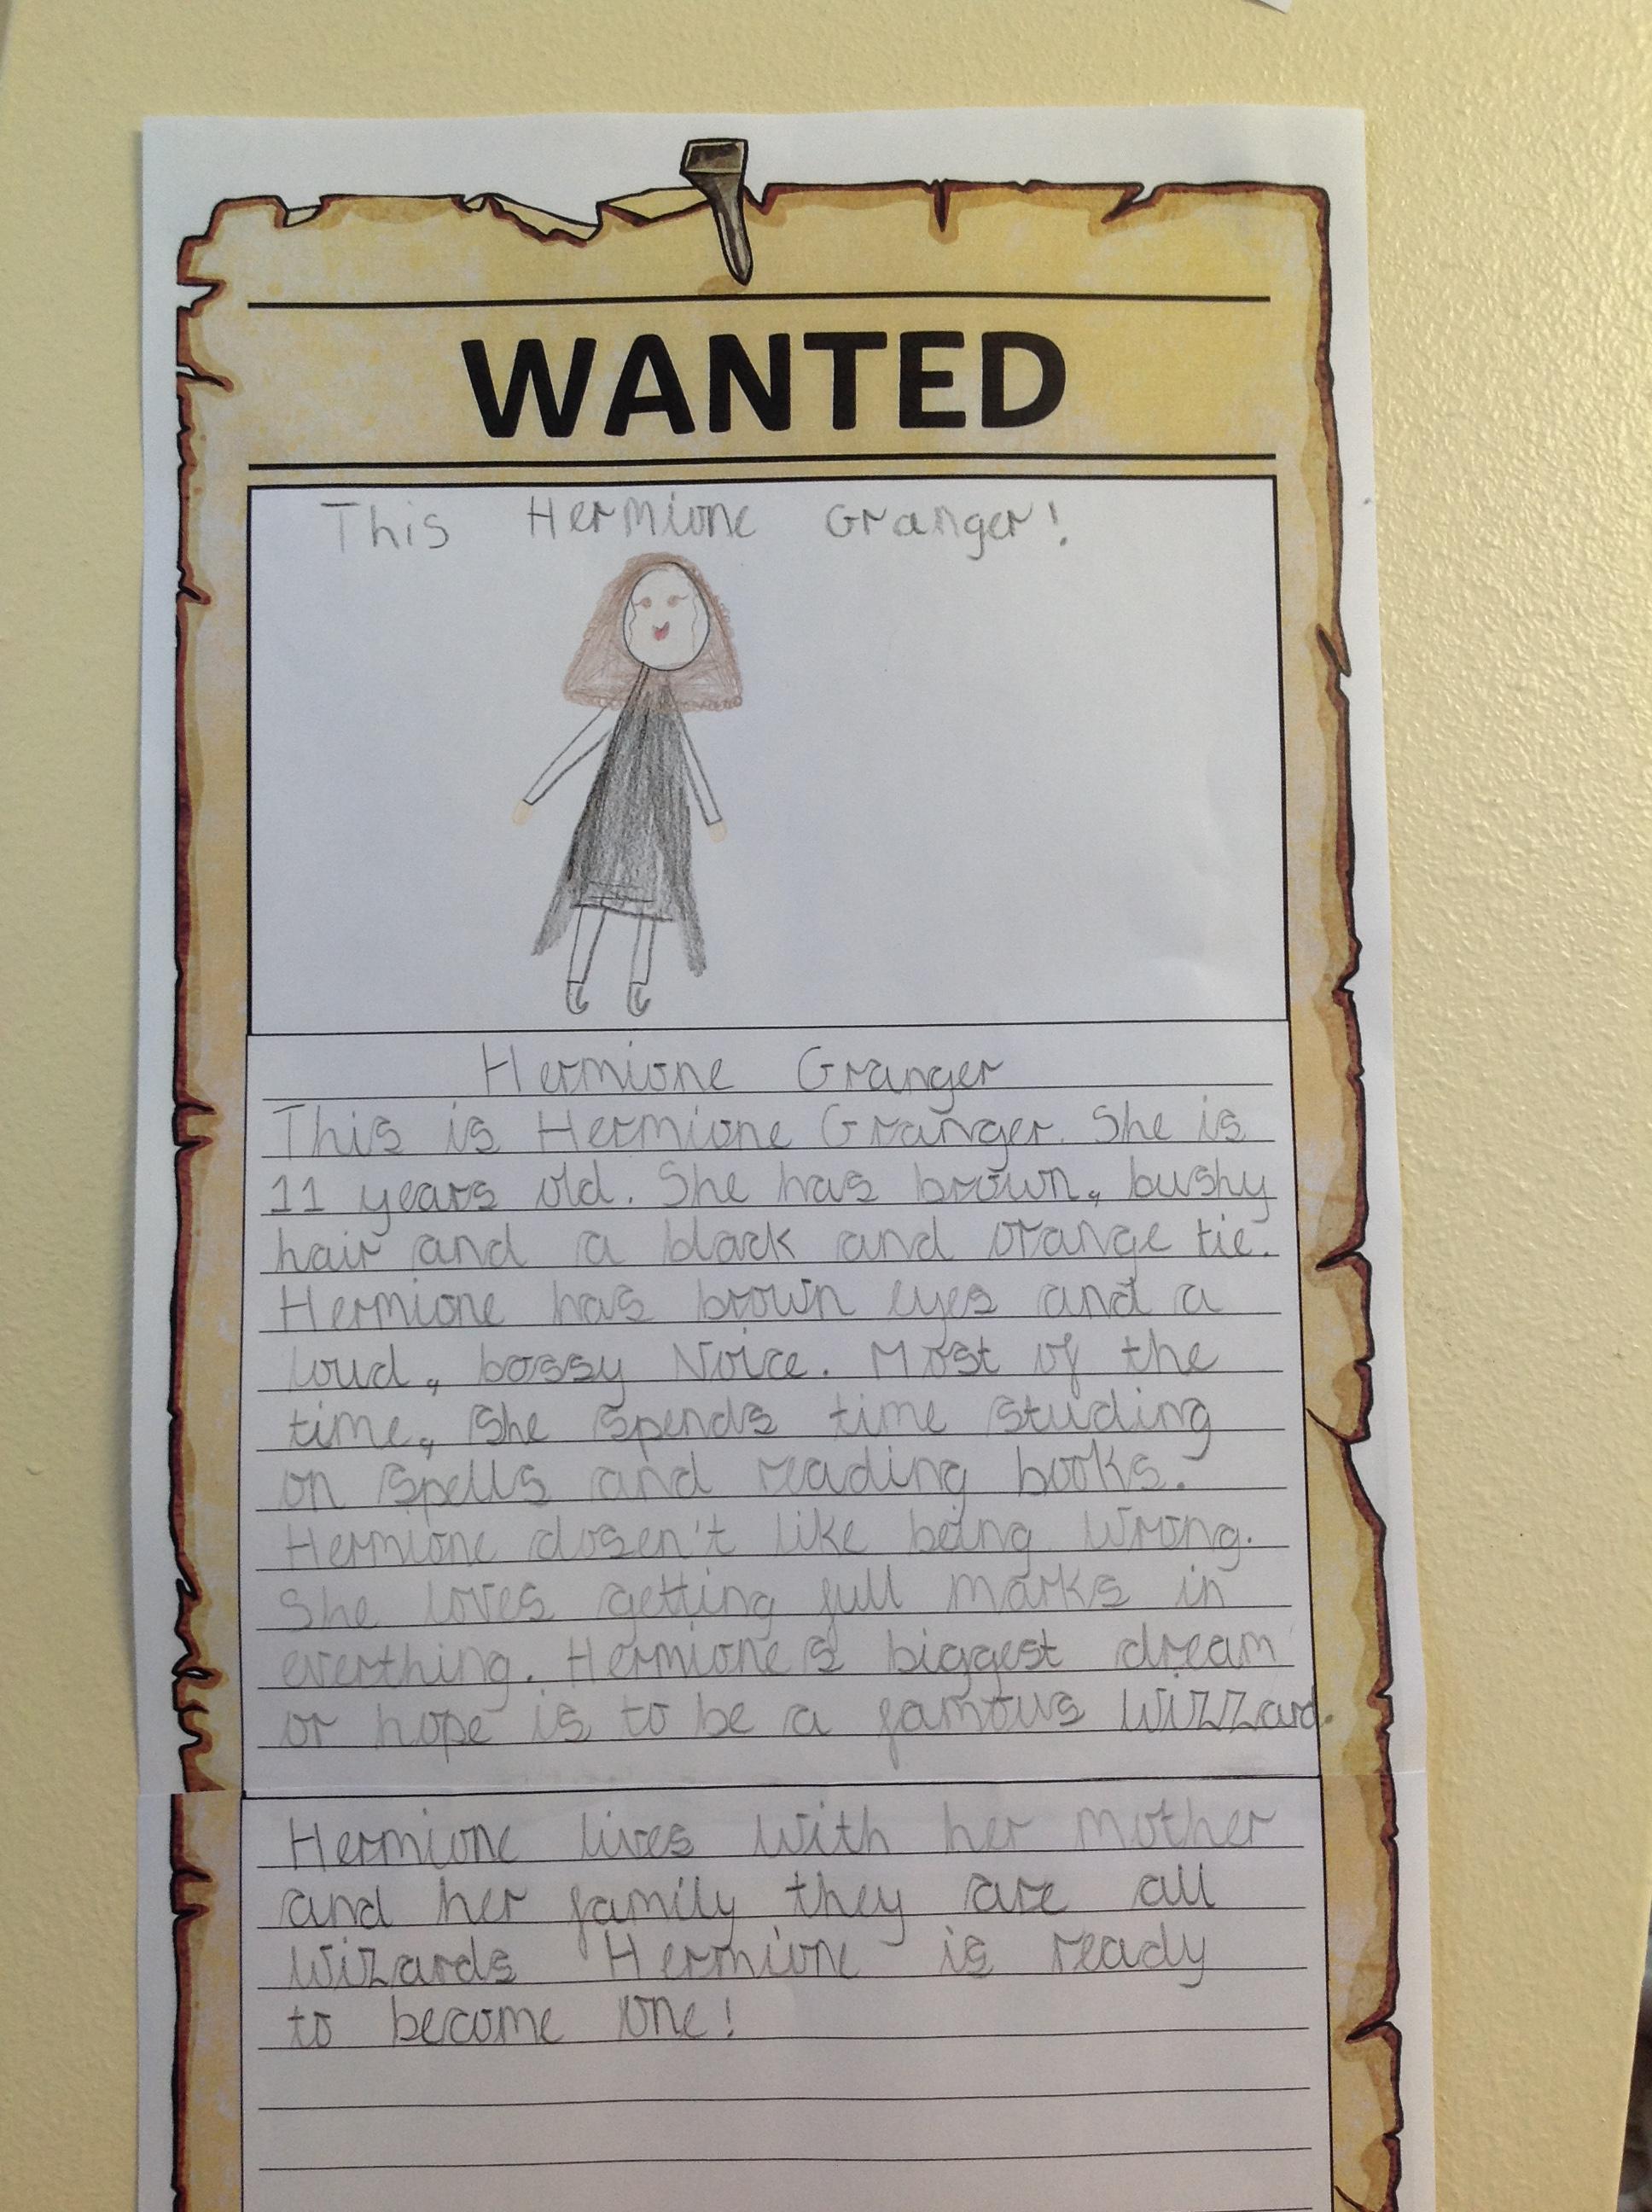 WANTED
This Hermione Granger!
Hermione Granger
This is Hermione Granger. She is
11 years old. She has brown, bushy
hair and a black and orange tie.
Hermione has brown eyes and a
loud, bossy Noice. Most of the
time, she spends time studing
on spells and reading books.
Hermione dosen't like being wrong.
She loves getting full marks in
everthing. Hermione's biggest dream
or hope is to be a famous wizzard.
Hermione lives with her mother
and her family they are all
wizards Hermione is ready
to become one!